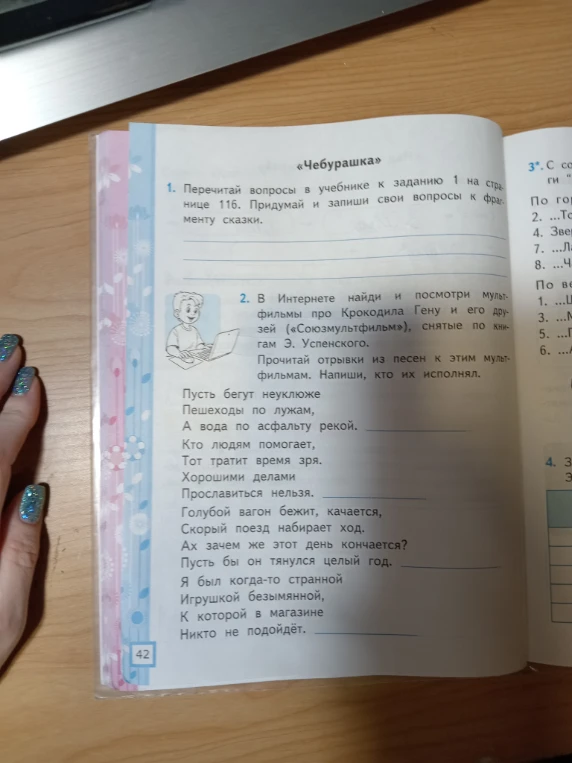 «Чебурашка»
1. Перечитай вопросы в учебнике к заданию 1 на стра-
нице 116. Придумай и запиши свои вопросы к фраг-
менту сказки.
2. В Интернете найди и посмотри мульт-
фильмы про Крокодила Гену и его дру-
зей («Союзмультфильм»), снятые по кни-
гам Э. Успенского.
Прочитай отрывки из песен к этим мульт-
фильмам. Напиши, кто их исполнял.
Пусть бегут неуклюже
Пешеходы по лужам,
А вода по асфальту рекой.
Кто людям помогает,
Тот тратит время зря.
Хорошими делами
Прославиться нельзя.
Голубой вагон бежит, качается,
Скорый поезд набирает ход.
Ах зачем же этот день кончается?
Пусть бы он тянулся целый год.
Я был когда-то странной
Игрушкой безымянной,
К которой в магазине
Никто не подойдёт.
42
3*. С со
ги "
По гор
2. ...То
4. Звер
7. ...Ла
8. ...Ч
По ве
1. ...Ш
3. ...М
5. ...Г
6. ...
4. З
Э